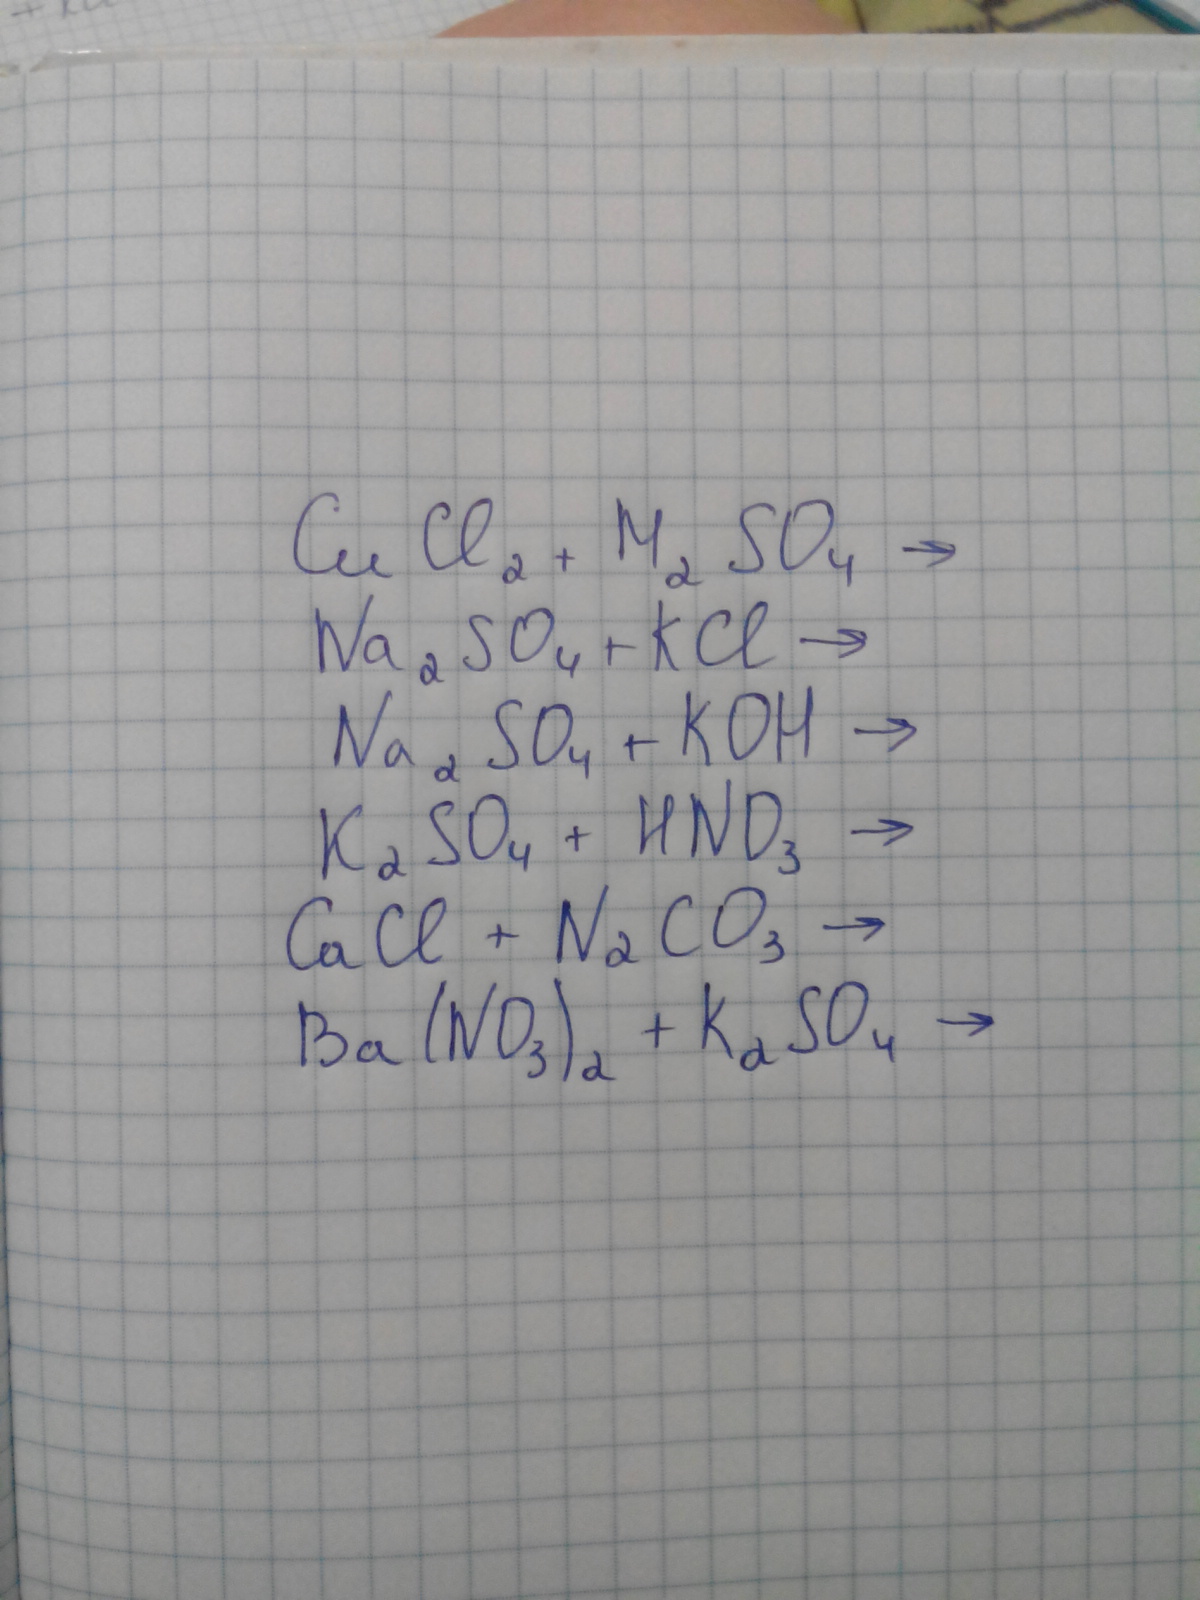 CuCl₂ + M₂SO₄ →
Na₂SO₄ + KCl →
Na₂SO₄ + KOH →
K₂SO₄ + HNO₃ →
CaCl + N₂CO₃ →
Ba(NO₃)₂ + K₂SO₄ →